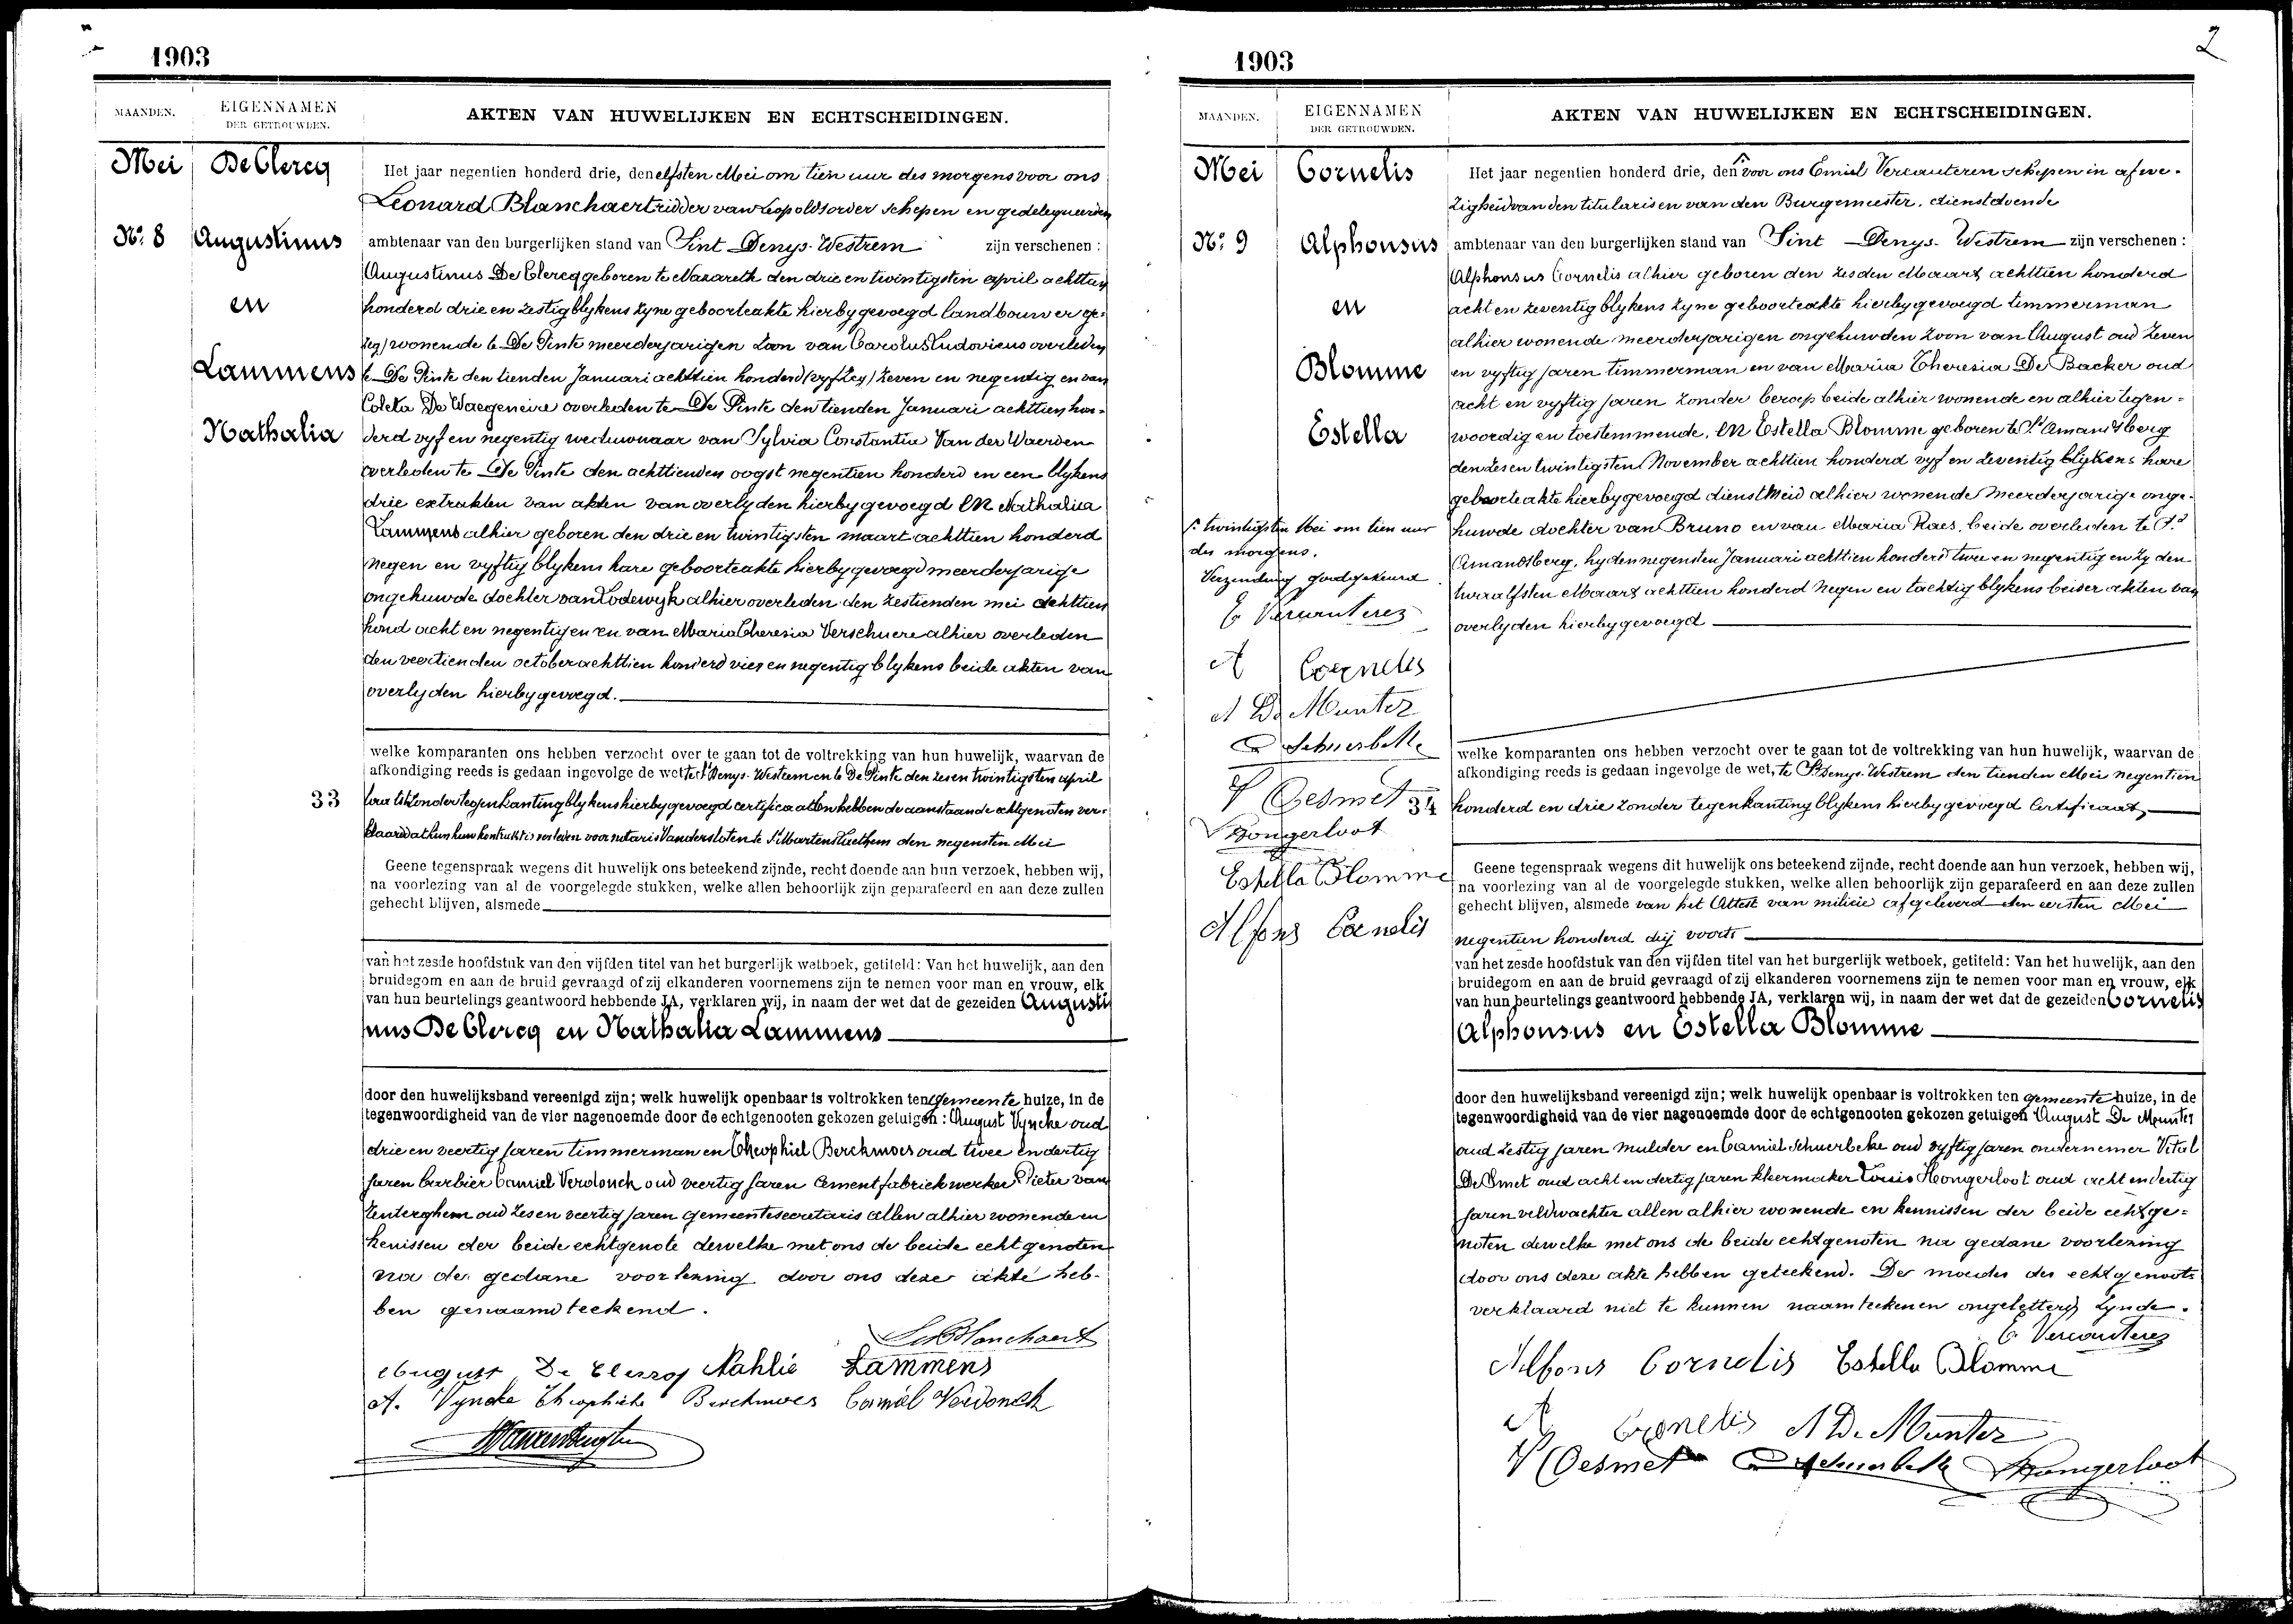 1903
MAANDEN.
EIGENNAMEN
DER GETROUWDEN.
AKTEN VAN HUWELIJKEN EN ECHTSCHEIDINGEN.
Mei
De Clercq
No. 8
Augustinus
en
Lammens
Nathalia
Het jaar negentien honderd drie, den elfsten Mei om tien uur des morgens voor ons
Leonard Blanchaert ridder van Leopoldsorder schepen en gedelegueerden
ambtenaar van den burgerlijken stand van Sint Denys-Westrem zijn verschenen :
Augustinus De Clercq geboren te Nazareth den drie en twintigsten april achttien
honderd drie en zestig blykens zyne geboorteakte hierbygevoegd landbouwer ge-
zeg) wonende te De Pinte meerderjarigen zoon van Carolus Ludovicus overleden
te De Pinte den tienden Januari achttien honderd (vyf zeg) zeven en negentig en van
Coleta De Waegeneire overleden te De Pinte den tienden Januari achttien hon-
derd vyf en negentig weduwnaar van Sylvia Constantia Van der Waerden
overleden te De Pinte den achttienden oogst negentien honderd en een blykens
drie extrakten van akten van overlyden hierbygevoegd EN Nathalia
Lammens alhier geboren den drie en twintigsten maart achttien honderd
negen en vyftig blykens hare geboorteakte hierbygevoegd meerderjarige
ongehuwde dochter van Lodewyk alhier overleden den zestienden mei achttien
hond acht en negentig en en van Maria Theresia Verschuere alhier overleden
den veertienden october achttien honderd vier en negentig blykens beide akten van
overlyden hierbygevoegd.
welke komparanten ons hebben verzocht over te gaan tot de voltrekking van hun huwelijk, waarvan de
afkondiging reeds is gedaan ingevolge de wet te St Denys-Westrem en te De Pinte den zes en twintigsten april
33
zonder tegenkanting blykens hierbygevoegd certificaatten hebben de aanstaande echtgenoten ver-
klaard dat hun huw kontrakt is verleden voor notaris Vandersloten te St Martens Leethem den negensten Mei
Geene tegenspraak wegens dit huwelijk ons beteekend zijnde, recht doende aan hun verzoek, hebben wij,
na voorlezing van al de voorgelegde stukken, welke allen behoorlijk zijn geparafeerd en aan deze zullen
gehecht blijven, alsmede
van het zesde hoofdstuk van den vijfden titel van het burgerlijk wetboek, getiteld: Van het huwelijk, aan den
bruidegom en aan de bruid gevraagd of zij elkanderen voornemens zijn te nemen voor man en vrouw, elk
van hun beurtelings geantwoord hebbende JA, verklaren wij, in naam der wet dat de gezeiden Augusti
nus De Clercq en Nathalia Lammens
door den huwelijksband vereenigd zijn; welk huwelijk openbaar is voltrokken ten gemeente huize, in de
tegenwoordigheid van de vier nagenoemde door de echtgenooten gekozen getuigen : August Vyncke oud
drie en veertig jaren timmerman en Theophiel Berckmoes oud twee en dertig
jaren barbier Camiel Verdonck oud veertig jaren Cementfabriekwerker Pieter van
Zenterghem oud zes en veertig jaren gemeentesecretaris allen alhier wonende en
kenissen der beide echtgenote dewelke met ons de beide echtgenoten
na de gedane voorlezing door ons deze akte heb-
ben genaamteekend.
L Blanchaert
August De Clercq Nahlie Lammens
A. Vyncke Theophiele Berckmoes Camiel Verdonck
1903
2
MAANDEN.
EIGENNAMEN
DER GETROUWDEN.
AKTEN VAN HUWELIJKEN EN ECHTSCHEIDINGEN.
Mei
Cornelis
No. 9
Alphonsus
en
Blomme
Estella
twintigsten Mei om tien uur
des morgens.
Verzending goedgekeurd
E Vercauteren
A Cornelis
A De Munter
C Schuerbeke
V Desmet
Hongerloot
Estella Blomme
Alfons Cornelis
Het jaar negentien honderd drie, den voor ons Emiel Vercauteren schepen in afwe-
zigheid van den titularis en van den Burgemeester, dienstdoende
ambtenaar van den burgerlijken stand van Sint Denys-Westrem zijn verschenen :
Alphonsus Cornelis alhier geboren den zesden Maart achttien honderd
acht en zeventig blykens zyne geboorteakte hierbygevoegd timmerman
alhier wonende meerderjarigen ongehuwden zoon van August oud zeven
en vyftig jaren timmerman en van Maria Theresia De Backer oud
acht en vyftig jaren zonder beroep beide alhier wonende en alhier tegen-
woordig en toestemmende, EN Estella Blomme geboren te St Amandsberg
den zes en twintigsten November achttien honderd vyf en zeventig blykens hare
geboorteakte hierbygevoegd dienstmeid alhier wonende meerderjarige onge-
huwde dochter van Bruno en van Maria Raes, beide overleden te St
Amandsberg, hy den negensten Januari achttien honderd twee en negentig en zy den
twaalfsten Maart achttien honderd negen en tachtig blykens beider akten van
overlyden hierbygevoegd
welke komparanten ons hebben verzocht over te gaan tot de voltrekking van hun huwelijk, waarvan de
afkondiging reeds is gedaan ingevolge de wet, te St Denys-Westrem den tienden Mei negentien
34
honderd en drie zonder tegenkanting blykens hierbygevoegd Certificaat,
Geene tegenspraak wegens dit huwelijk ons beteekend zijnde, recht doende aan hun verzoek, hebben wij,
na voorlezing van al de voorgelegde stukken, welke allen behoorlijk zijn geparafeerd en aan deze zullen
gehecht blijven, alsmede van het Attest van milicie afgeleverd den eersten Mei
negentien honderd drij voorts
van het zesde hoofdstuk van den vijfden titel van het burgerlijk wetboek, getiteld: Van het huwelijk, aan den
bruidegom en aan de bruid gevraagd of zij elkanderen voornemens zijn te nemen voor man en vrouw, elk
van hun beurtelings geantwoord hebbende JA, verklaren wij, in naam der wet dat de gezeiden Cornelis
Alphonsus en Estella Blomme
door den huwelijksband vereenigd zijn; welk huwelijk openbaar is voltrokken ten gemeente huize, in de
tegenwoordigheid van de vier nagenoemde door de echtgenooten gekozen getuigen August De Munter
oud zestig jaren mulder en Camiel Schuerbeke oud vyftig jaren ondernemer Vital
De Smet oud acht en dertig jaren kleermaker Louis Hongerloot oud acht en dertig
jaren veldwachter allen alhier wonende en kennissen der beide echtge-
noten dewelke met ons de beide echtgenoten na gedane voorlezing
door ons deze akte hebben geteekend. De moeder des echtgenoots
verklaard niet te kunnen naamteekenen ongeletterd zynde.
E Vercauteren
Alfons Cornelis Estella Blomme
A Cornelis A De Munter
V Desmet C Schuerbeke Hongerloot